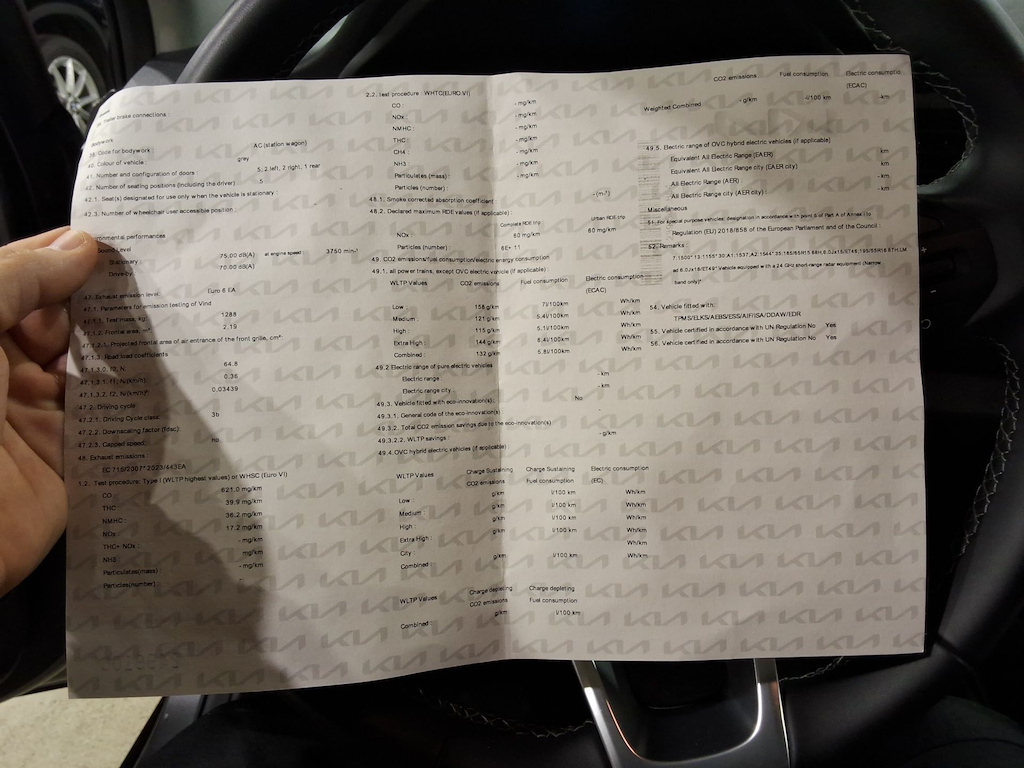 36. Trailer brake connections :
Bodywork
38. Code for bodywork : AC (station wagon)
40. Colour of vehicle : grey
41. Number and configuration of doors : 5; 2 left, 2 right, 1 rear
42. Number of seating positions (including the driver) : 5
42.1. Seat(s) designated for use only when the vehicle is stationary :
42.3. Number of wheelchair user accessible position :
Environmental performances
Sound Level
Stationary : 75.00 dB(A) at engine speed : 3750 min-¹
Drive-by : 70.00 dB(A)
47. Exhaust emission level Euro 6 EA
47.1. Parameters for emission testing of Vind
47.1.1. Test mass, kg 1288
47.1.2. Frontal area, m² 2.19
47.1.2.1. Projected frontal area of air entrance of the front grille, cm² :
47.1.3. Road load coefficients
47.1.3.0. f0, N 64.8
47.1.3.1. f1, N/(km/h) 0.36
47.1.3.2. f2, N/(km/h)² 0.03439
47.2. Driving cycle
47.2.1. Driving Cycle class 3b
47.2.2. Downscaling factor (fdsc)
47.2.3. Capped speed : no
48. Exhaust emissions
EC 715/2007*2023/443EA
1.2. Test procedure: Type I (WLTP highest values) or WHSC (Euro VI)
CO : 621.0 mg/km
THC : 39.9 mg/km
NMHC : 36.2 mg/km
NOx : 17.2 mg/km
THC+ NOx : - mg/km
NH3 : mg/km
Particulates(mass) : - mg/km
Particles(number) :
2.2. Test procedure : WHTC(EURO VI)
CO : - mg/km
NOx : - mg/km
NMHC : - mg/km
THC : - mg/km
CH4 : - mg/km
NH3 : - mg/km
Particulates (mass) : - mg/km
Particles (number) :
48.1. Smoke corrected absorption coefficient - (m-¹)
48.2. Declared maximum RDE values (if applicable) :
Complete RDE trip Urban RDE trip
NOx : 60 mg/km 60 mg/km
Particles (number) : 6E+ 11
49. CO2 emissions/fuel consumption/electric energy consumption
49.1. all power trains, except OVC electric vehicle (if applicable)
WLTP Values CO2 emissions Fuel consumption Electric consumption
(ECAC)
Low : 158 g/km 7 l/100km Wh/km
Medium : 121 g/km 5.4 l/100km Wh/km
High : 115 g/km 5.1 l/100km Wh/km
Extra High : 144 g/km 6.4 l/100km Wh/km
Combined : 132 g/km 5.8 l/100km Wh/km
49.2 Electric range of pure electric vehicles
Electric range - km
Electric range city : - km
49.3. Vehicle fitted with eco-innovation(s) : No
49.3.1. General code of the eco-innovation(s)
49.3.2. Total CO2 emission savings due to the eco-innovation(s)
49.3.2.2. WLTP savings : - g/km
49.4. OVC hybrid electric vehicles (if applicable)
WLTP Values Charge Sustaining Charge Sustaining Electric consumption
CO2 emissions Fuel consumption (EC)
Low : g/km l/100 km Wh/km
Medium : g/km l/100 km Wh/km
High : g/km l/100 km Wh/km
Extra High : g/km l/100 km Wh/km
City : Wh/km
Combined : g/km l/100 km Wh/km
WLTP Values Charge depleting Charge depleting
CO2 emissions Fuel consumption
Combined : g/km l/100 km
CO2 emissions Fuel consumption Electric consumption
(ECAC)
Weighted Combined - g/km -l/100 km km
49.5. Electric range of OVC hybrid electric vehicles (if applicable)
Equivalent All Electric Range (EAER) - km
Equivalent All Electric Range city (EAER city) - km
All Electric Range (AER) - km
All Electric Range city (AER city) : - km
Miscellaneous
51. For special purpose vehicles: designation in accordance with point 5 of Part A of Annex I to
Regulation (EU) 2018/858 of the European Parliament and of the Council :
52. Remarks :
Vehicle equipped with a 24 GHz short-range radar equipment (Narrow
band only)"
54. Vehicle fitted with:
TPMS/ELKS/AEBS/ESS/AIF/ISA/DDAW/EDR
55. Vehicle certified in accordance with UN Regulation No Yes
56. Vehicle certified in accordance with UN Regulation No Yes